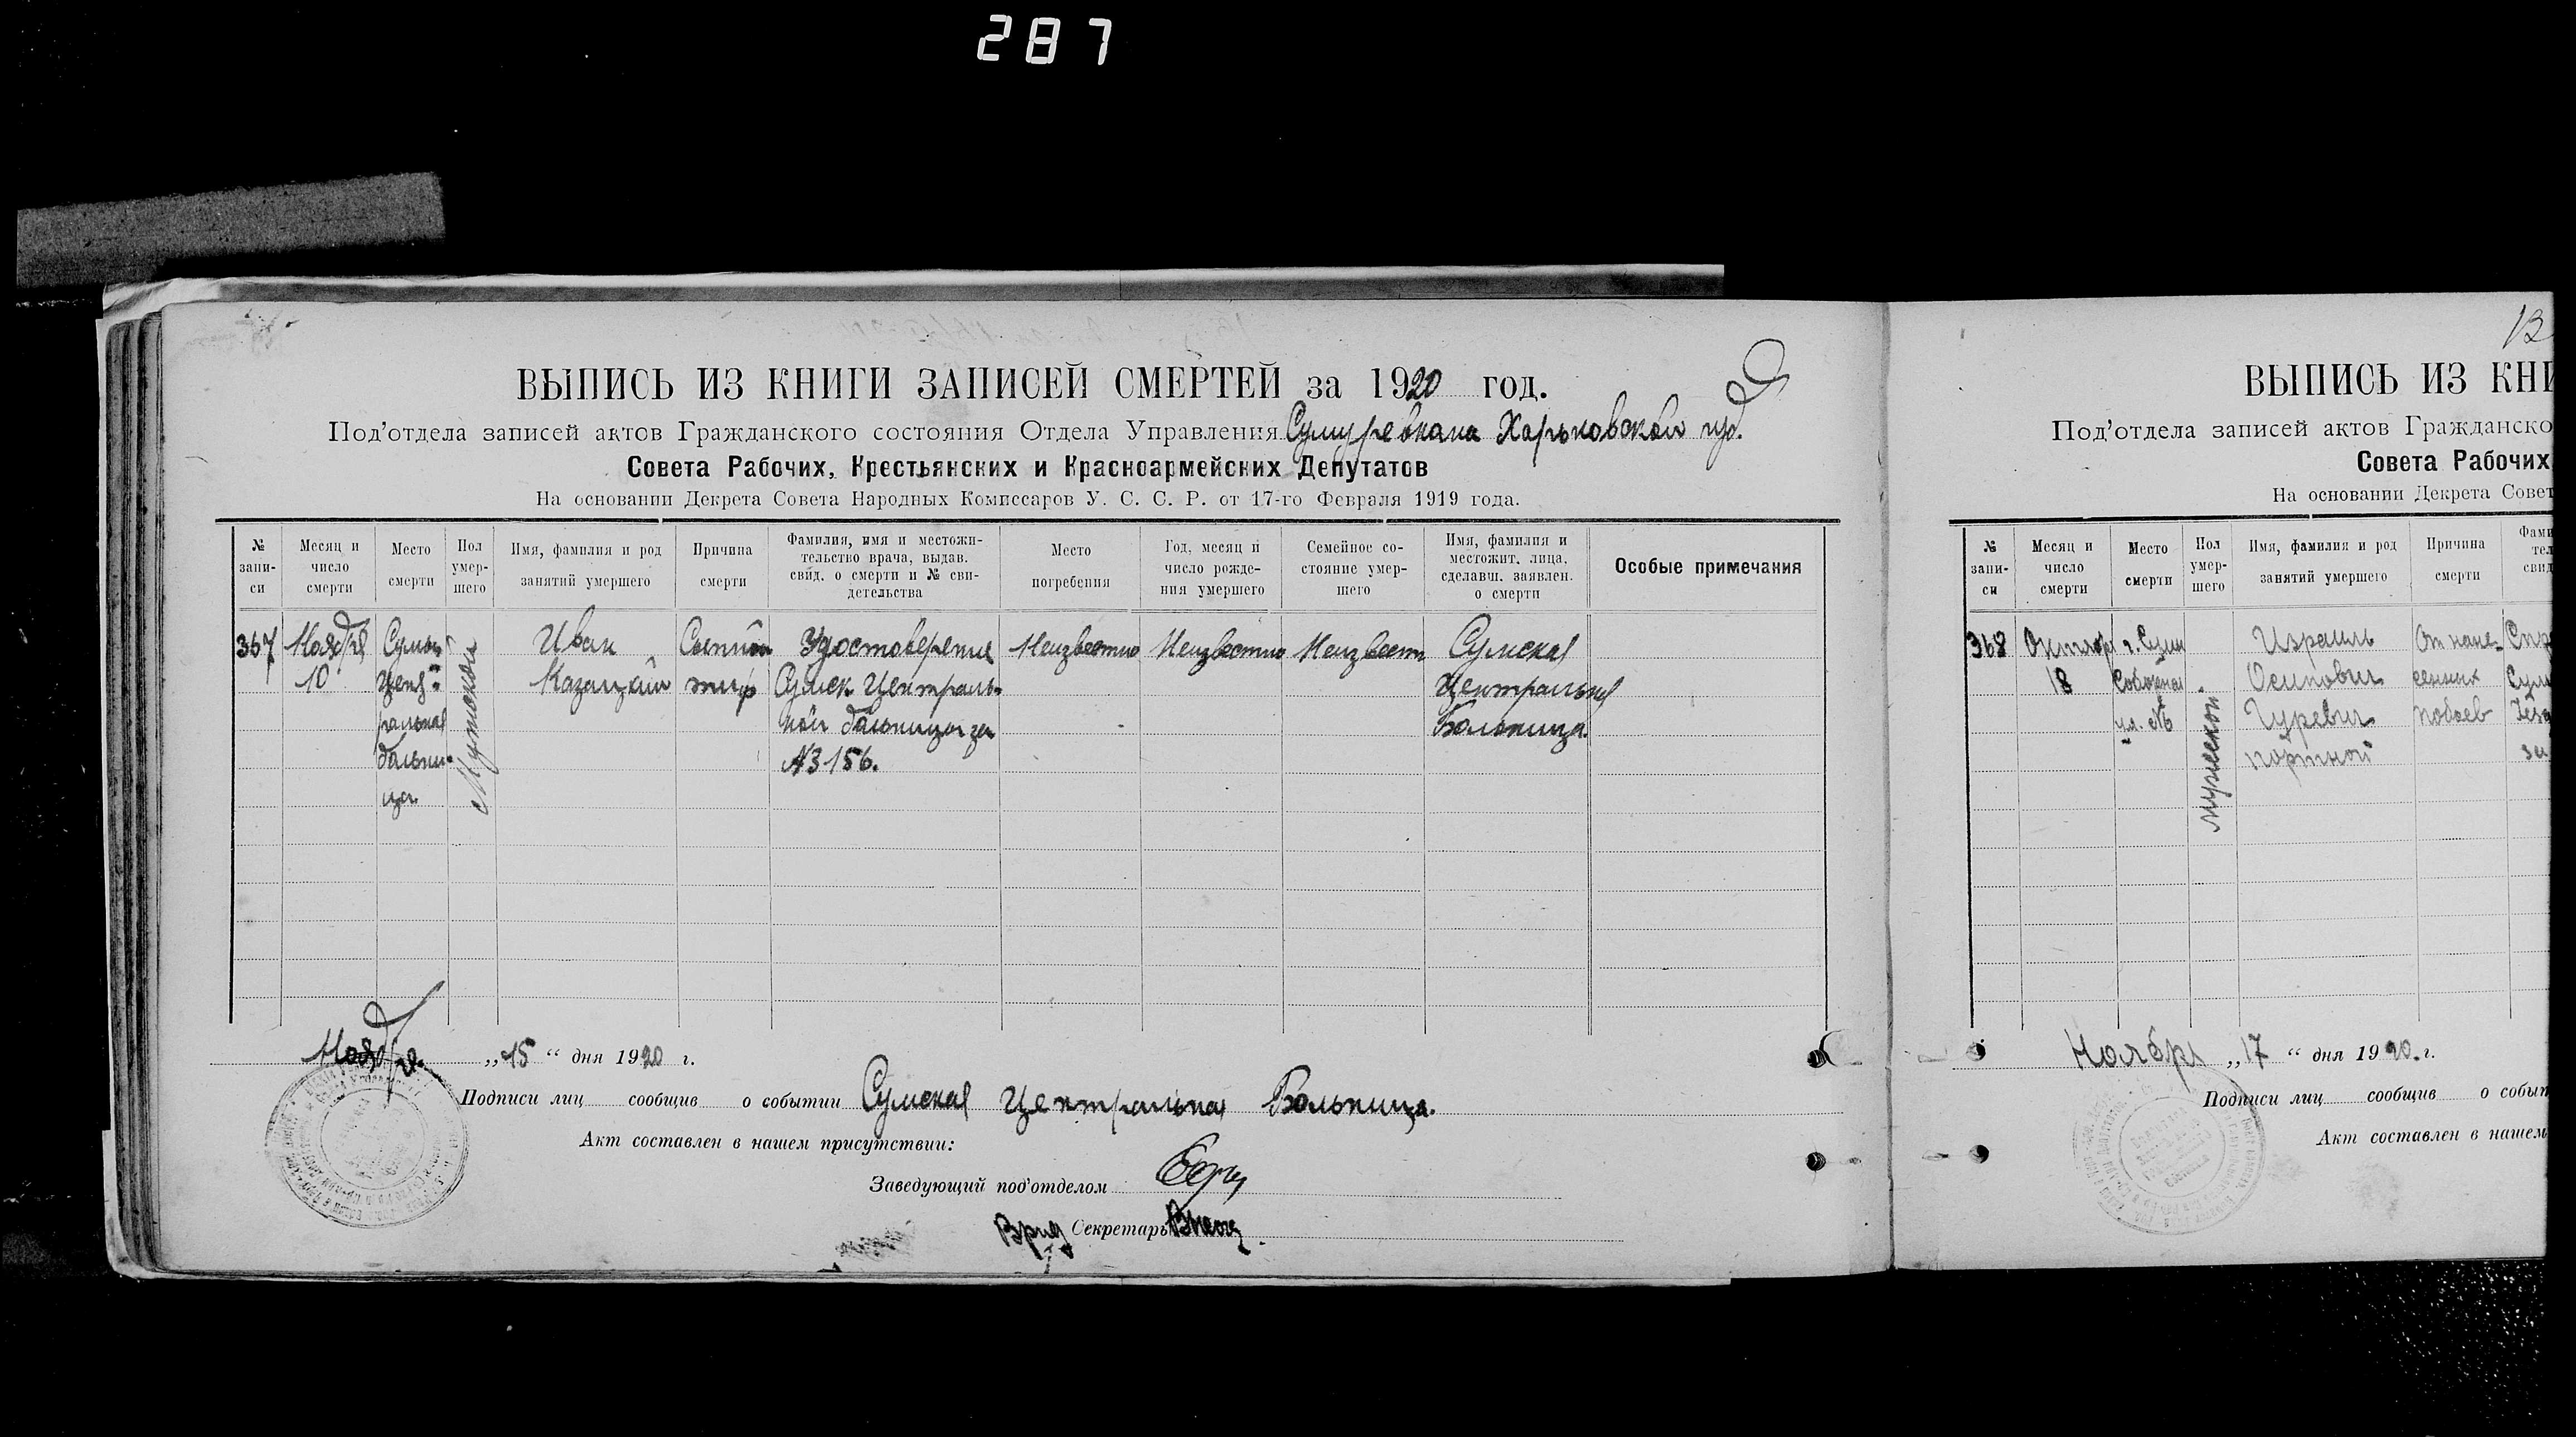 287
ВЫПИСЬ ИЗ КНИГИ ЗАПИСЕЙ СМЕРТЕЙ за 1920 год.
Под'отдела записей актов Гражданского состояния Отдела Управления Сумуревкома Харьковской губ.
Совета Рабочих, Крестьянских и Красноармейских Депутатов
На основании Декрета Совета Народных Комиссаров У. С. С. Р. от 17-го Февраля 1919 года.
№ запи-си
Месяц и число смерти
Место смерти
Пол умер-шего
Имя, фамилия и род занятий умершего
Причина смерти
Фамилия, имя и местожи-тельство врача, выдав. свид. о смерти и № сви-детельства
Место погребения
Год, месяц и число рожде-ния умершего
Семейное со-стояние умер-шего
Имя, фамилия и местожит. лица, сделавш. заявлен. о смерти
Особые примечания
367
Ноября
10
Сумы
Цент-
ральная
больни-
ца
Мужской
Иван
Казацкий
Сыпной
тиф
Удостоверение
Сумск. Централь-
ной больницы за
№ 3156.
Неизвестно
Неизвестно
Неизвестн
Сумская
Центральная
Больница
Ноября „15“ дня 1920 г.
Подписи лиц сообщив о событии Сумская Центральная Больница.
Акт составлен в нашем присутствии:
Заведующий под'отделом
Врид Секретарь
13
ВЫПИСЬ ИЗ КНИ
Под'отдела записей актов Гражданско
Совета Рабочих
На основании Декрета Совет
№ запи-си
Месяц и число смерти
Место смерти
Пол умер-шего
Имя, фамилия и род занятий умершего
Причина смерти
Фами
тел
свид
368
Октябр
18
г. Сумы
Соборная
ул. №
мужской
Израиль
Осипович
Гуревич
портной
От нане-
сенных
побоев
Ноябрь „17“ дня 1920. г.
Подписи лиц сообщив о событ
Акт составлен в нашем